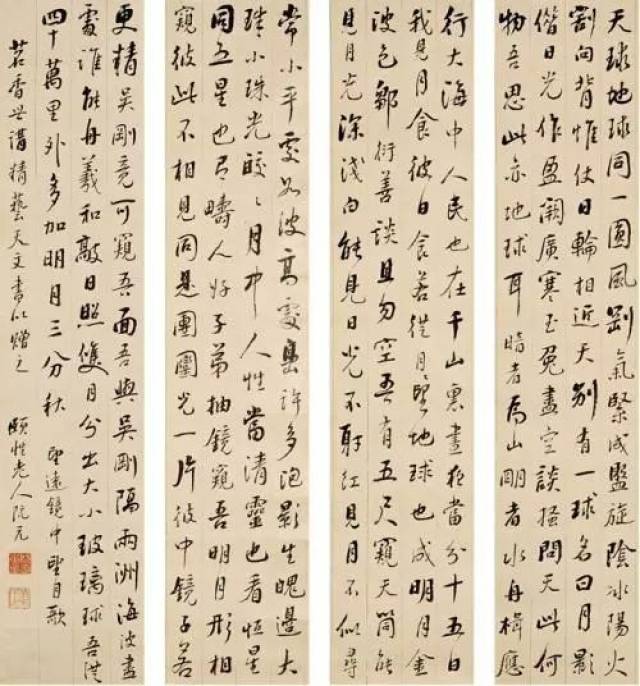 天球地球同一圓風剛氣緊成盤旋陰冰陽火
割向背惟仗日輪相近天別有一球名曰月影
借日光作盈闕廣寒玉兔盡空談搔問天此何
物吾思此亦地球耳暗者為山明者水舟楫應
行大海中人民也在千山裏晝夜當分十五日
我見月食彼日食若從月望地球也成明月金
波色鄒衍善談且勿空吾有五尺窺天筒能
見月光深淺白能見日光不射紅見月不似尋
常小平處如波高處巒許多泡影生魄邊大
珠小珠光皎々月中人性當清靈也看恒星
同五星也有疇人好子弟抽鏡窺吾明月形相
窺彼此不相見同是團圞光一片彼中鏡子若
更精吳剛竟可窺吾面吾與吳剛隔兩洲海波盡
處誰能舟羲和敲日照雙月分出大小玻璃球吾從
四十萬里外多加明月三分秋 望遠鏡中望月歌
茗香世講精藝天文書以贈之 頤性老人阮元